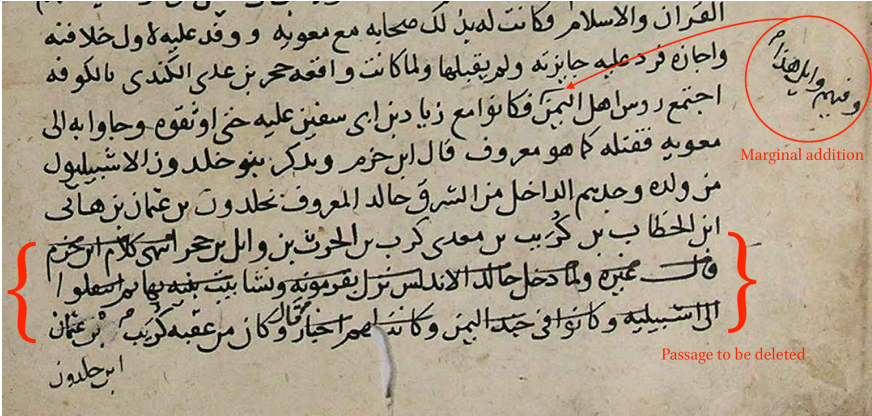 القران والاسلام فكانت له بذلك صحابه مع معويه ووفد عليه لاول خلافته
واجازه فرد عليه جايزته ولم يقبلها ولما كانت واقعه حجر بن عدى الكندى بالكوفه
اجتمع روس اهل اليمن فكانوا مع زياد بن ابى سفين عليه حتى اوثقوه وجاوا به الى
معويه فقتله كما هو معروف قال ابن حزم ويذكر بنو خلدون الاشبيليون
من ولده وجدهم الداخل من الشرق خالد المعروف بخلدون بن عثمان بن هانى
ابن الخطاب بن كريب بن معدى كرب بن الحرث بن وايل بن حجر انتهى كلام ابن حزم
قال غيره ولما دخل خالد الاندلس نزل بقرمونه ونشا بيت بنيه بها ثم انتقلوا
الى اشبيليه وكانوا فى جند اليمن وكانت لهم اخبار قال وكان من عقبه كريب بن عثمان
ابن خلدون
وفيهم وايل هذا
Marginal addition
Passage to be deleted